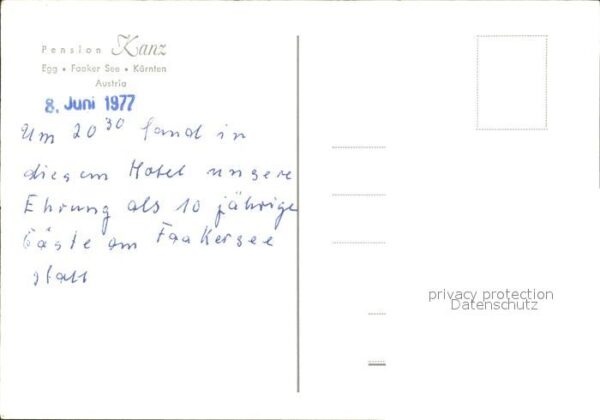 Pension Kanz
Egg • Faaker See • Kärnten
Austria
8. Juni 1977
Um 20 30 fand in
diesem Hotel unsere
Ehrung als 10 jährige
Gäste am Faakersee
statt
privacy protection
Datenschutz